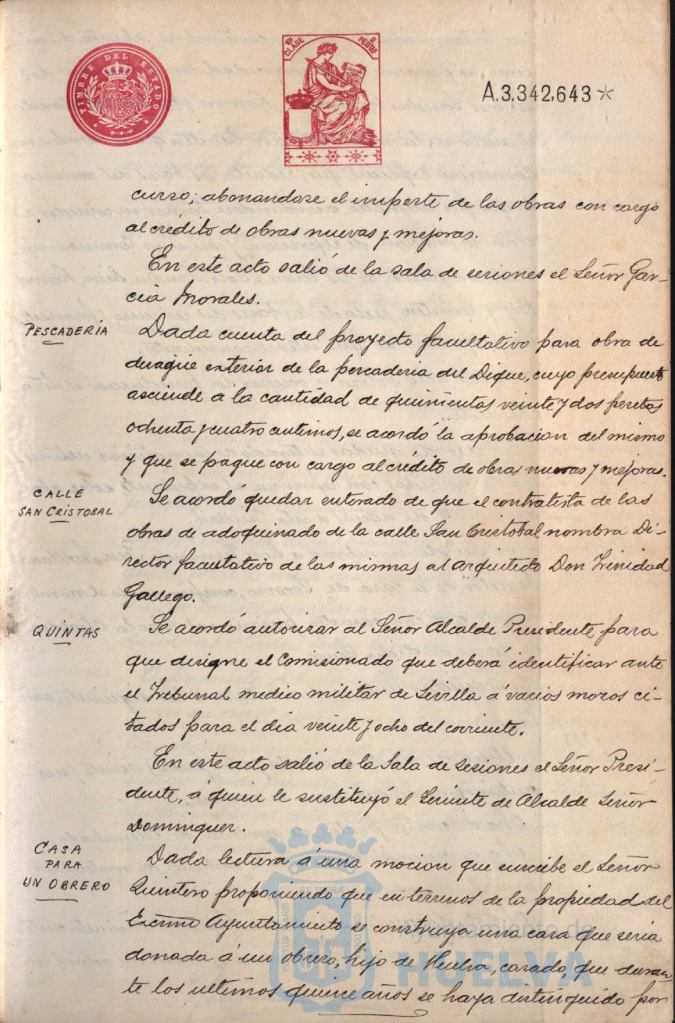 TIMBRE DEL ESTADO
CLASE
A.3.342.643
curso; abonandose el importe de las obras con cargo
al crédito de obras nuevas y mejoras.
En este acto salió de la sala de sesiones el Señor Gar-
cia Morales.
PESCADERIA
Dada cuenta del proyecto facultativo para obra de
desagüe exterior de la pescaderia del Dique, cuyo presupuesto
asciende á la cantidad de quinientas veinte y dos pesetas
ochenta y cuatro centimos, se acordó la aprobacion del mismo
y que se pague con cargo al crédito de obras nuevas y mejoras.
CALLE
SAN CRISTOBAL
Se acordó quedar enterado de que el contratista de las
obras de adoquinado de la calle San Cristobal nombra Di-
rector facultativo de las mismas al arquitecto Don Trinidad
Gallego.
QUINTAS
Se acordó autorizar al Señor Alcalde Presidente para
que designe el Comisionado que deberá identificar ante
el Tribunal medico militar de Sevilla á varios mozos ci-
tados para el dia veinte y ocho del corriente.
En este acto salió de la Sala de Sesiones el Señor Presi-
dente, á quien le sustituyó el Teniente de Alcalde Señor
Dominguez.
CASA
PARA
UN OBRERO
Dada lectura á una mocion que suscribe el Señor
Quintero proponiendo que en terrenos de la propiedad del
Excmo Ayuntamiento se construya una casa que seria
donada á un obrero, hijo de Huelva, casado, que duran-
te los ultimos quince años se haya distinguido por
HUELVA